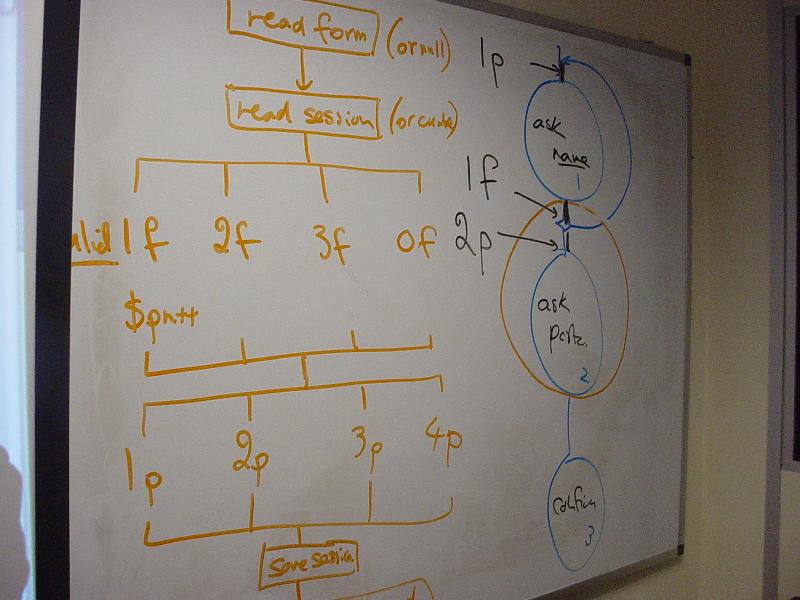 read form (or null)
read session (or create)
alid 1f 2f 3f 0f
$pn++
1p 2p 3p 4p
save session
1p
ask
name
1
1f
2p
ask
2
confirm
3